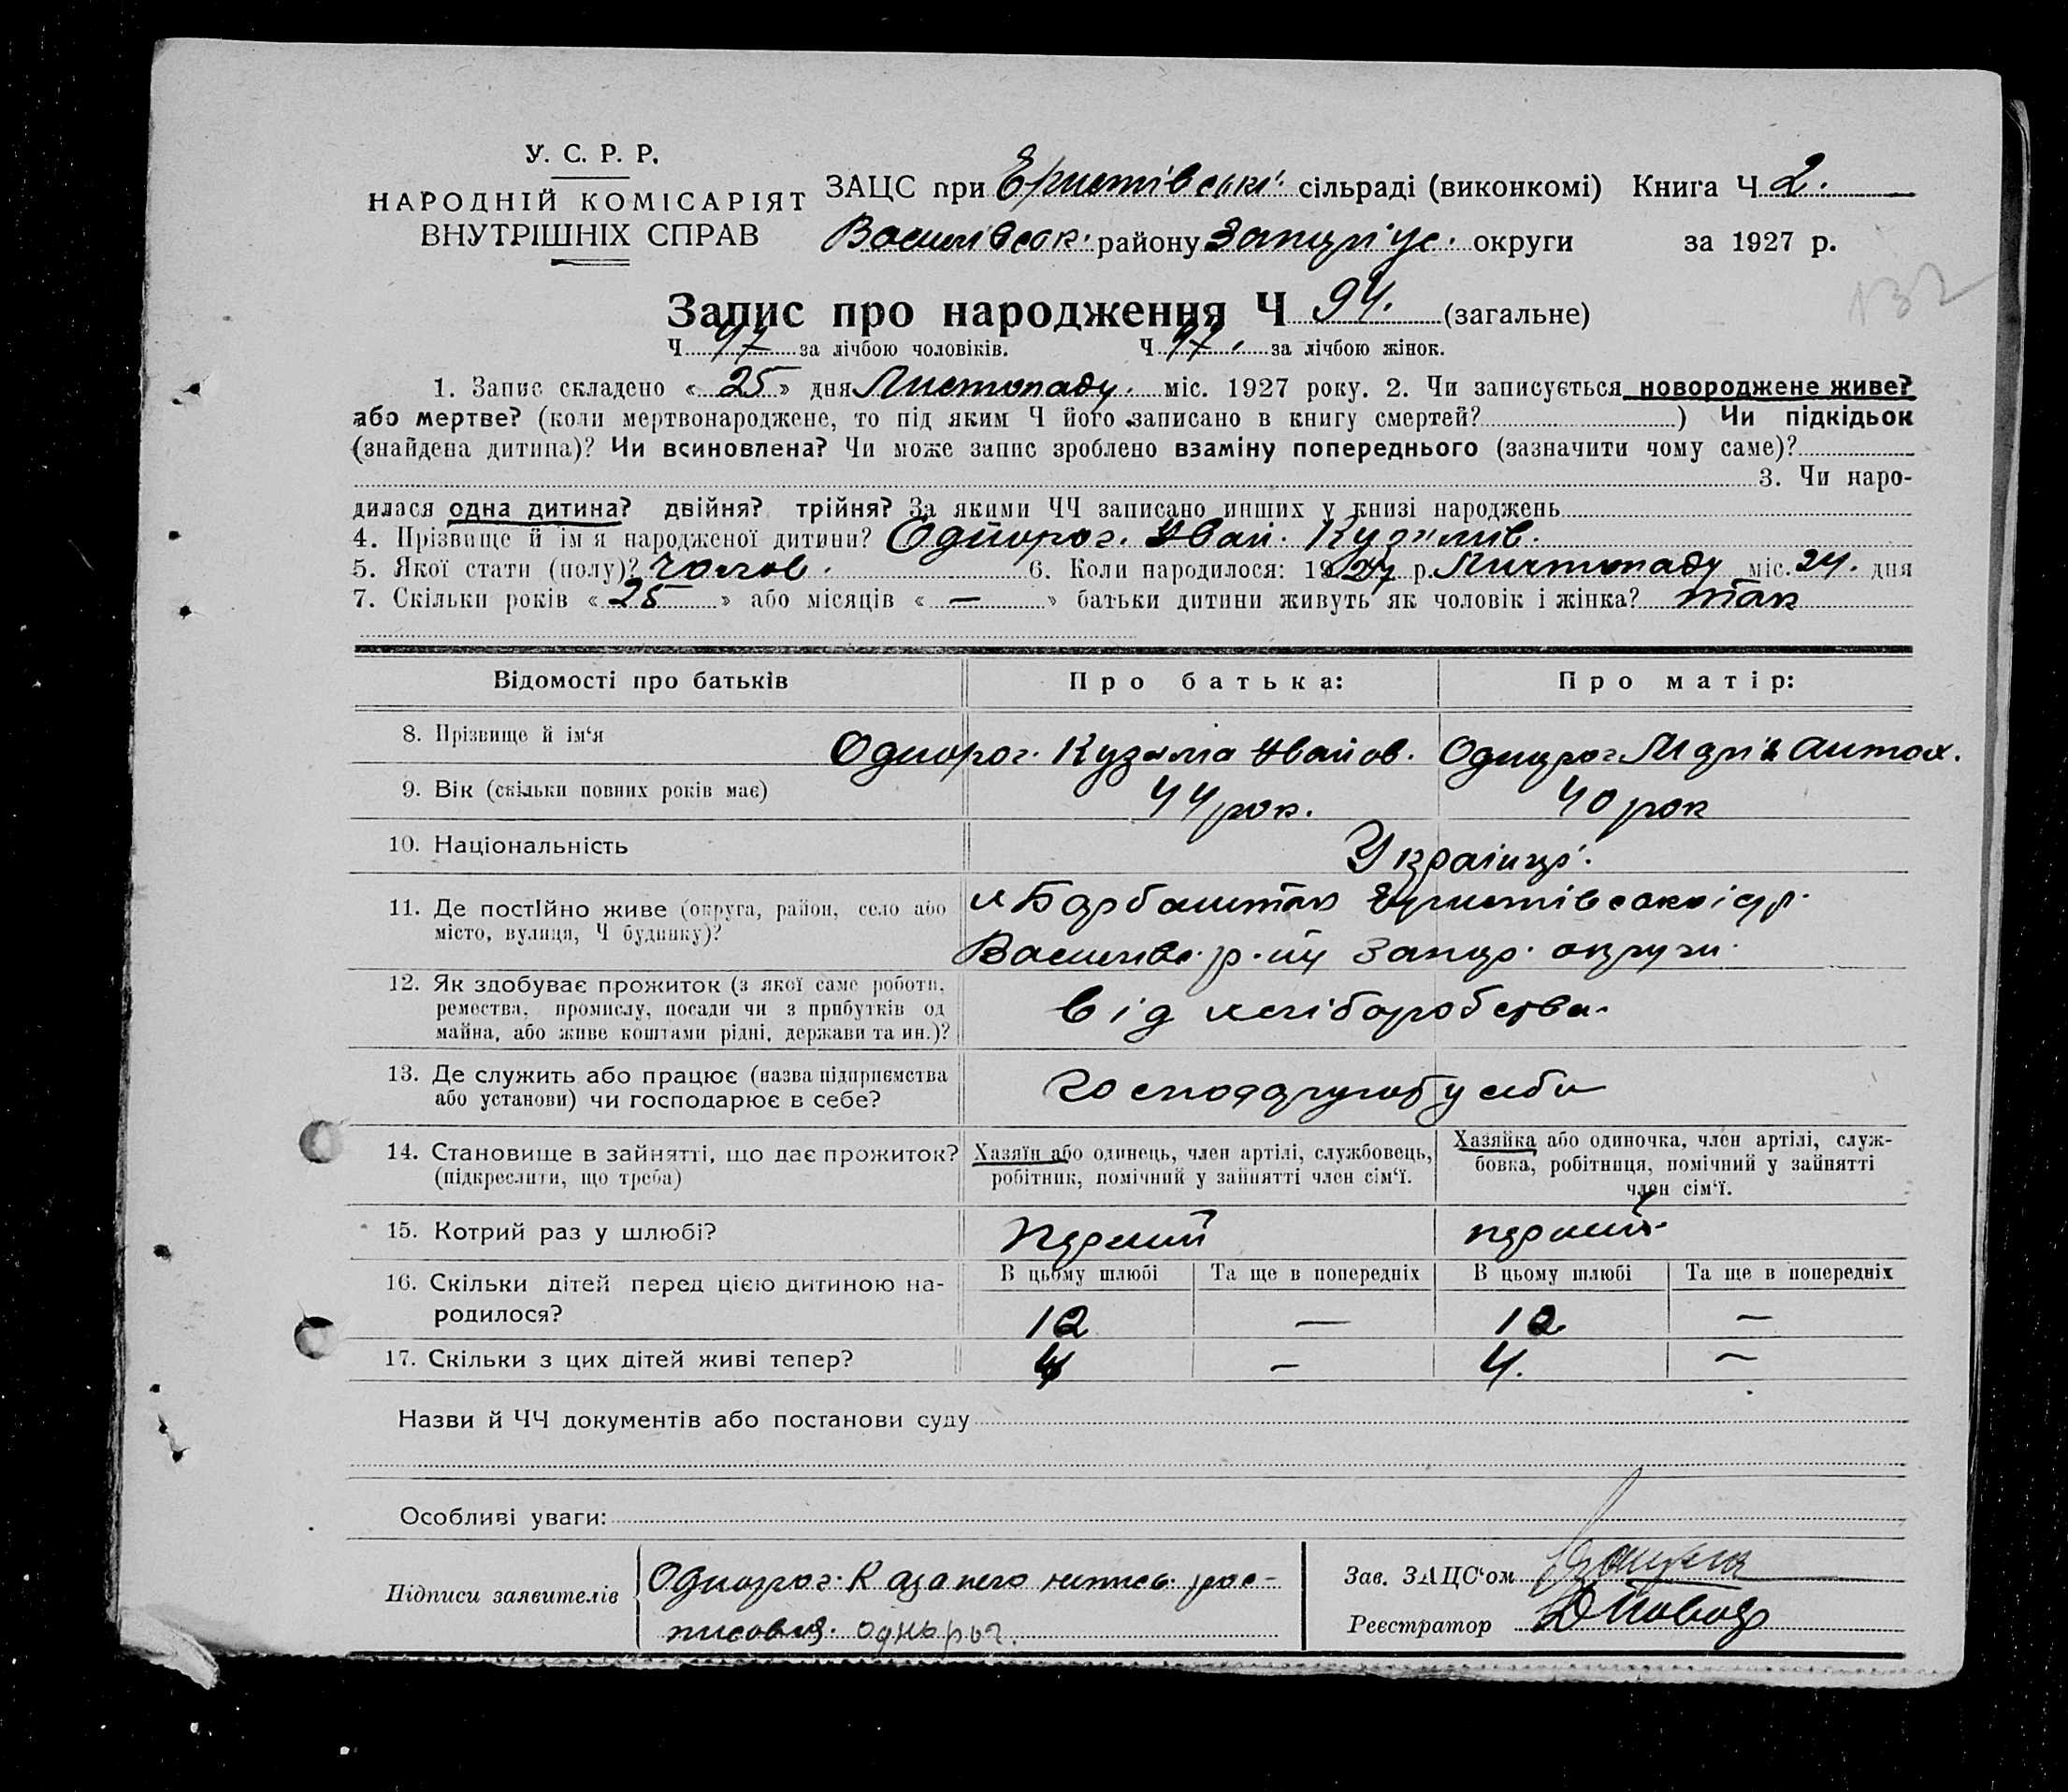 У. С. Р. Р.
НАРОДНІЙ КОМІСАРІЯТ
ВНУТРІШНІХ СПРАВ
ЗАЦС при Еристівські. сільраді (виконкомі) Книга Ч 2.
Василівськ. району Запоріж. округи за 1927 р.
132
Запис про народження Ч 94. (загальне)
Ч 47 за лічбою чоловіків. Ч 47. за лічбою жінок.
1. Запис складено « 25 » дня Листопаду. міс. 1927 року. 2. Чи записується новороджене живе?
або мертве? (коли мертвонароджене, то під яким Ч його записано в книгу смертей? ) Чи підкідьок
(знайдена дитина)? Чи всиновлена? Чи може запис зроблено взаміну попереднього (зазначити чому саме)?
3. Чи наро-
дилася одна дитина? двійня? трійня? За якими ЧЧ записано инших у книзі народжень
4. Прізвище й ім'я народженої дитини? Однорог. Иван. Кузьмів.
5. Якої стати (полу)? чолов. 6. Коли народилося: 1927 р. Листопаду міс. 24. дня
7. Скільки років « 25 » або місяців « — » батьки дитини живуть як чоловік і жінка? так
Відомості про батьків Про батька: Про матір:
8. Прізвище й ім'я Однорог. Кузьма Иванов. Однорог Марія Антон.
9. Вік (скільки повних років має) 44 рок. 40 рок
10. Національність Українці.
11. Де постійно живе (округа, район, село або
місто, вулиця, Ч будинку)?
Еристівської
Василівс. р-ну Запор. округи
12. Як здобуває прожиток (з якої саме роботи,
ремества, промислу, посади чи з прибутків од
майна, або живе коштами рідні, держави та ин.)?
від хліборобства.
13. Де служить або працює (назва підприємства
або установи) чи господарює в себе?
14. Становище в зайнятті, що дає прожиток?
(підкреслити, що треба)
Хазяїн або одинець, член артілі, службовець,
робітник, помічний у зайнятті член сім'ї.
Хазяйка або одиночка, член артілі, служ-
бовка, робітниця, помічний у зайнятті
член сім'ї.
15. Котрий раз у шлюбі? перший перший
16. Скільки дітей перед цією дитиною на-
родилося?
В цьому шлюбі Та ще в попередніх В цьому шлюбі Та ще в попередніх
12 — 12 —
17. Скільки з цих дітей живі тепер? 4 — 4. —
Назви й ЧЧ документів або постанови суду
Особливі уваги:
Підписи заявителів Однорог.
однорог.
Зав. ЗАЦС'ом
Реєстратор